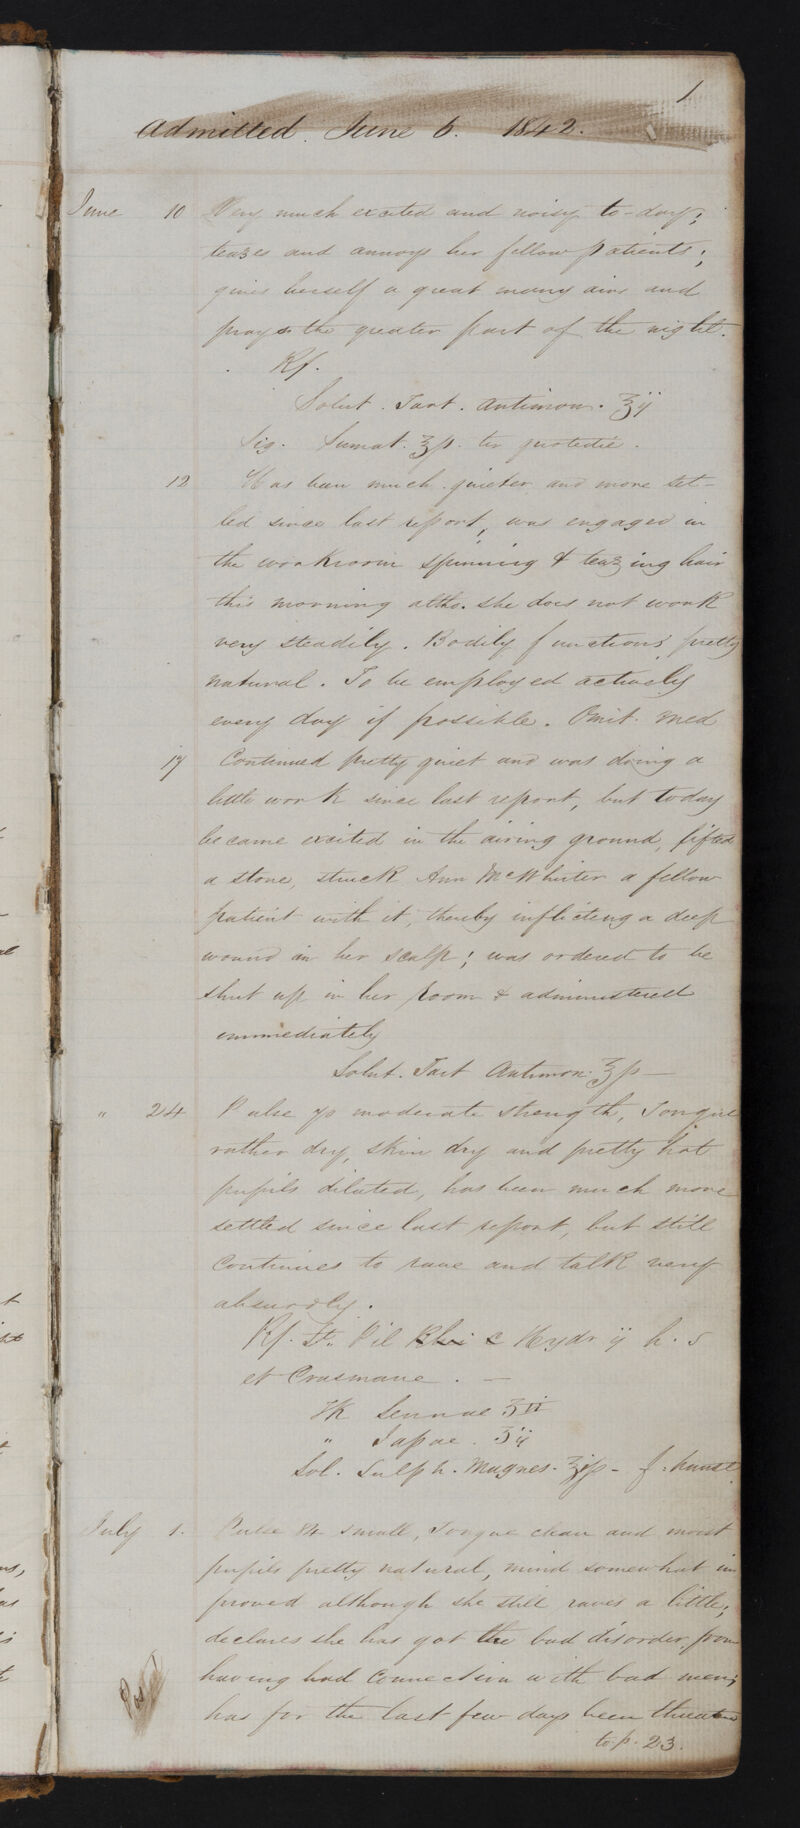 1
Admitted June 6. 1842.
June 10 Very much excited and noisy to-day;
teazes and annoys her fellow patients;
gives herself a great many airs and
prays the greater part of the night.
Rf.
Solut. Tart. Antimon. ℥ij
Sig. Sumat. ℥ß. ter
12 Has been much quieter and more set-
led since last report, was engaged in
the workroom spinning & teazing hair
this morning altho. she does not work
very steadily. Bodily functions pretty
natural. To be employed actively
every day if possible. Omit. Med
17 Continued pretty quiet and was doing a
little work since last report, but today
became excited in the airing ground, lifted
a stone, struck Ann McWhirter a fellow
patient with it, thereby inflicting a deep
wound in her scalp; was ordered to be
shut up in her room & administered
immediately
Solut. Tart Antimon. ℥ß —
" 24 Pulse 70 moderate strength, Tongue
rather dry, skin dry and pretty hot
pupils dilated, has been much more
settled since last report, but still
continues to rave and talk very
absurdly.
Rf. Pil Rhei c Hydr ij h. s
et Crasmane. —
Sennae
"
Sol. Sulph. Magnes. f. haust
July 1. Pulse 84 small, Tongue clean and moist
pupils pretty natural, mind somewhat im
proved although she still raves a little;
declares she has got the bad disorder from
having had connection with bad men;
has for the last few days been
to p. 23.